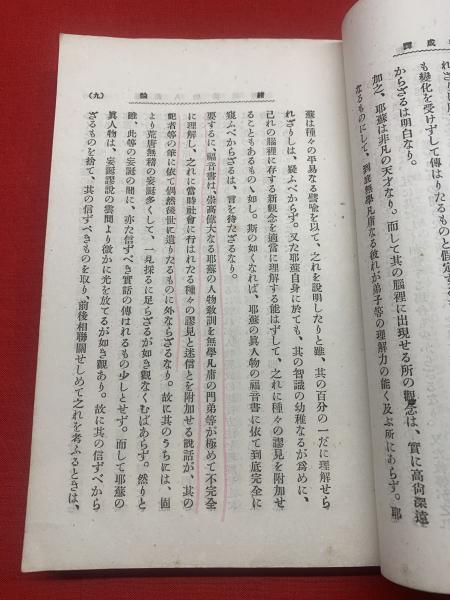 成譯
も變化を受けずして傳はりたるものと假定す
からざるは明白なり。
加之、耶蘇は非凡の天才なり。而して其の腦裡に出現せる所の觀念は、實に高尙深遠
なるものにして、到底無學凡庸なる彼れが弟子等の理解力の能く及ぶ所にあらず。耶
緖論
(九)
蘇は種々の平易なる譬喩を以て、之れを說明したりと雖、其の百分の一だに理解せら
れざりしは、疑ふべからず。又た耶蘇自身に於ても、其の智識の幼稚なるが爲めに、
己れの腦裡に存する新觀念を適當に理解する能はずして、之れに種々の謬見を附加せ
ることもあるものゝ如し。斯の如くなれば、耶蘇の眞人物の福音書に依て到底完全に
窺ふべからざるは、言を待たざるなり。
要するに、福音書は、崇高偉大なる耶蘇の人物敎訓を無學凡庸の門弟等が極めて不完全
に理解し、之れに當時社會に行はれたる種々の謬見と迷信とを附加せる說話が、其の
記者等の筆に依て偶然後世に遺りたるものに外ならざるなり。故に其のうちには、固
より荒唐無稽の妄誕多くして、一見採るに足らざるが如き觀なくむばあらず。然りと
雖、此等の妄誕の間に、亦た信ずべき實話の傳はれるもの少しとせず。而して耶蘇の
眞人物は、妄誕謬說の雲間より微かに光を放てるが如き觀あり。故に其の信ずべから
ざるものを捨て、其の信ずべきものを取り、前後相聯關せしめて之れを考ふるときは、